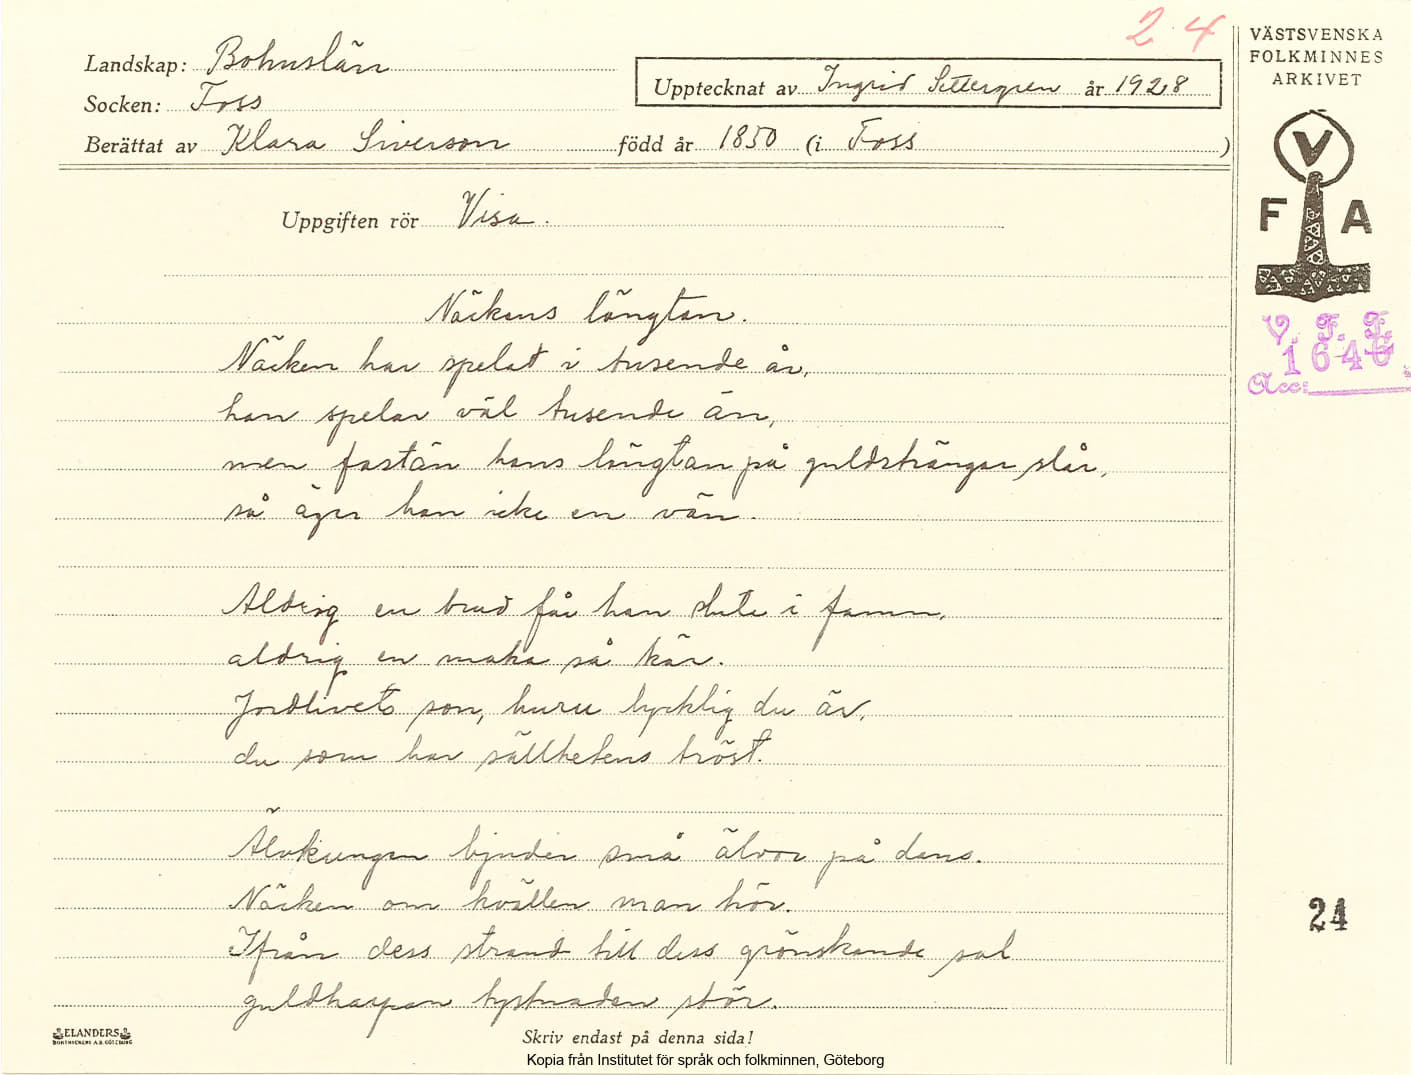 24
Landskap: Bohuslän
Socken: Foss
Upptecknat av Ingrid Settergren år 1928
Berättat av Klara Siverson född år 1850 (i Foss)
VÄSTSVENSKA
FOLKMINNES
ARKIVET
V
F A
V. F. F.
1646
Acc:
Uppgiften rör Visa.
Näckens längtan.
Näcken har spelat i tusende år,
han spelar väl tusende än,
men fastän hans längtan på guldsträngar slår,
så äger han icke en vän.
Aldrig en brud får han sluta i famn,
aldrig en maka så kär.
Jordlivets son, huru lycklig du är,
du som har sällhetens tröst.
Älvkungen bjuder små älvor på dans.
Näcken om kvällen man hör.
Ifrån dess strand till dess grönskande sal
guldharpan tystnaden stör.
24
ELANDERS
BOKTRYCKERI A.B. GÖTEBORG
Skriv endast på denna sida!
Kopia från Institutet för språk och folkminnen, Göteborg